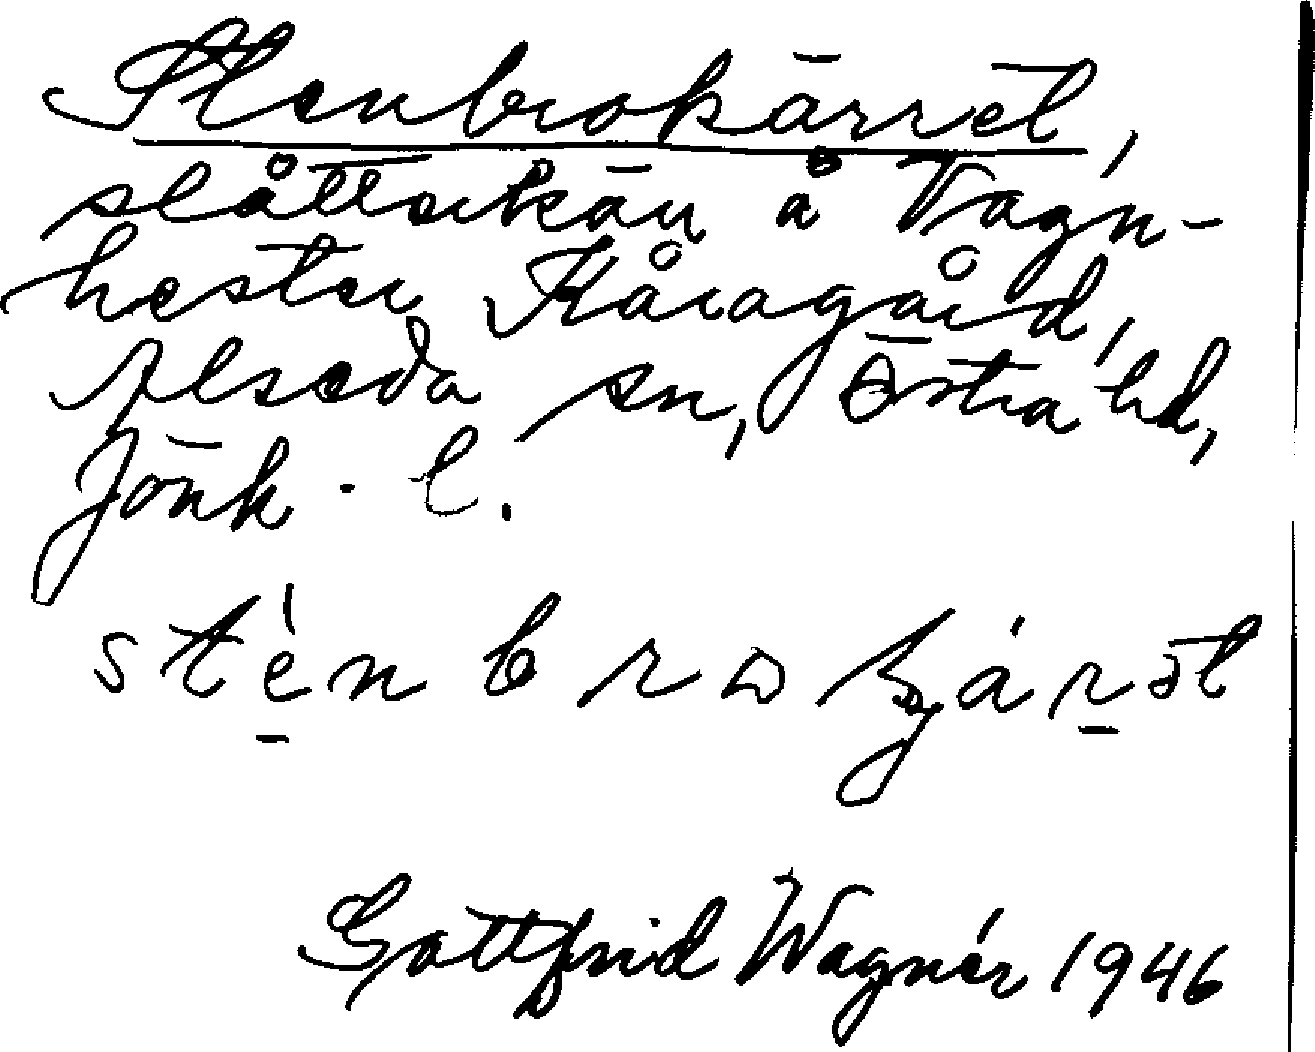 Stenbrokärret,
slåtterkärr å Vagn-
hester Kåragård,
Alseda sn, Östra hd,
Jönk. l.
stènbrokjárət
Gottfrid Wagnér 1946